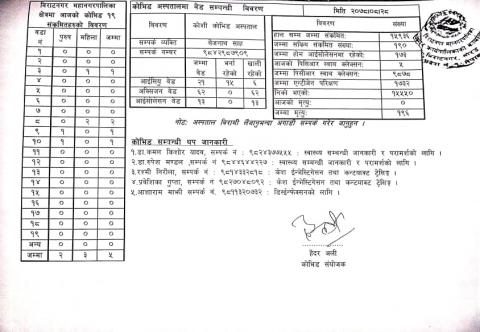 बिराटनगर महानगरपालिका
क्षेत्रमा आजको कोभिड १९
संक्रमितहरुको विवरण
वडा नं पुरुष महिला जम्मा
१ ० ० ०
२ ० ० ०
३ ० १ १
४ ० ० ०
५ ० ० ०
६ ० ० ०
७ ० ० ०
८ ० २ २
९ १ ० १
१० १ ० १
११ ० ० ०
१२ ० ० ०
१३ ० ० ०
१४ ० ० ०
१५ ० ० ०
१६ ० ० ०
१७ ० ० ०
१८ ० ० ०
१९ ० ० ०
अन्य ० ० ०
जम्मा २ ३ ५
कोभिड अस्पतालमा बेड सम्बन्धी विवरण
विवरण कोशी कोभिड अस्पताल
सम्पर्क व्यक्ति बैजनाथ साह
सम्पर्क नम्बर ९८४२९८७९०९
जम्मा बेड भर्ना रहेको खाली रहेको
आईसियु बेड २१ १५ ६
अक्सिजन बेड ६२ ० ६२
आईसोलेसन बेड १३ ० १३
मिति २०७८।०८।२८
विवरण संख्या
हाल सम्म जम्मा संक्रमित: १५९३६
जम्मा सक्रिय संक्रमित संख्या: १९०
जम्मा होम आईसोलेसनमा रहेको: १७३
आजको पिसिआर स्वाब संकलन: ५
जम्मा पिसीआर स्वाब संकलन: ९८७८
जम्मा एन्टीजेन परिक्षण १७३२
निको भएको: १५५५०
आजको मृत्यु: ०
जम्मा मृत्यु: १९६
नोट: अस्पताल बिरामी लैजानुभन्दा अगाडी सम्पर्क गरेर जानुहुन ।
कोभिड सम्बन्धी थप जानकारी
१.डा.कमल किशोर यादव, सम्पर्क नं : ९८५२४३७७५५५ : स्वास्थ्य सम्बन्धी जानकारी र परामर्शको लागि ।
२.डा.रुपेश मण्डल ,सम्पर्क नं ९८४४६४४२२७ : स्वास्थ्य सम्बन्धी जानकारी र परामर्शको लागि ।
३.रश्मी निरौला, सम्पर्क नं : ९८१४३३२९१८ : केश ईन्भेस्टिगेसन तथा कन्ट्याक्ट ट्रेसिङ्ग ।
४.प्रबेशिका गुप्ता, सम्पर्क नं : ९८२७०४८०९२ : केश ईन्भेस्टिगेसन तथा कन्ट्याक्ट ट्रेसिङ्ग ।
५.आशाराम माझी सम्पर्क नं. ९८११३२०७३२ : डिस्ईन्फेक्सनको लागि ।
हैदर अली
कोभिड संयोजक